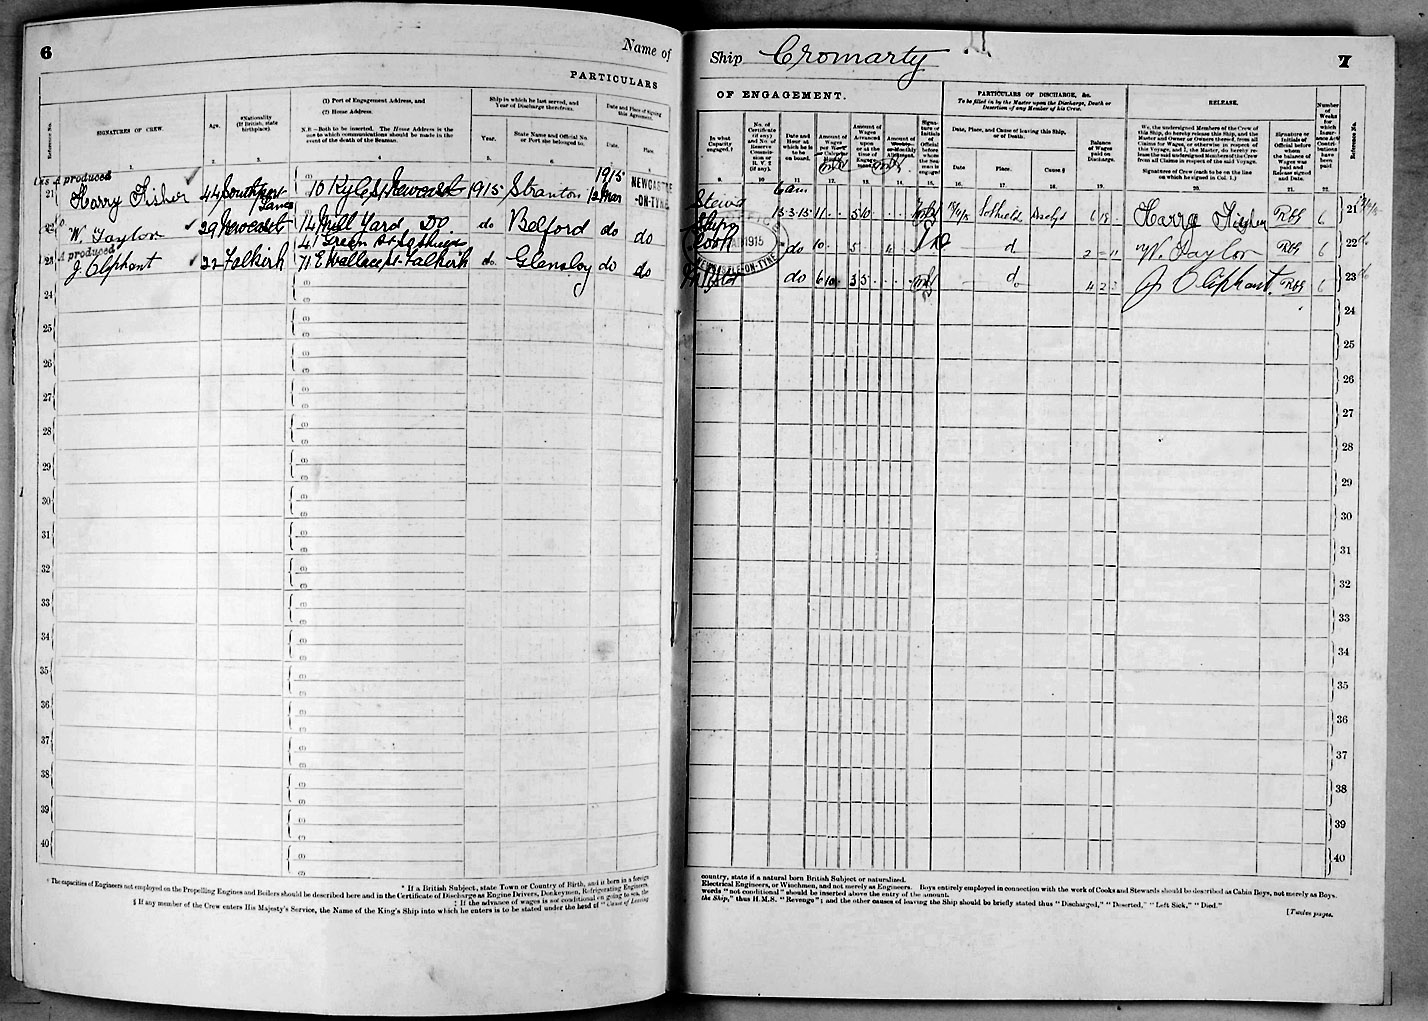 6
Name of
PARTICULARS
Reference No.
SIGNATURES OF CREW.
Age.
*Nationality
(If British, state
birthplace).
(1) Port of Engagement Address, and
(2) Home Address.
N.B.—Both to be inserted. The Home Address is the
one to which communications should be made in the
event of the death of the Seaman.
Ship in which he last served, and
Year of Discharge therefrom.
Year.
State Name and Official No.
or Port she belonged to.
Date and Place of Signing
this Agreement.
Date.
Place.
1.
2.
3.
4.
5.
6.
produced
21
Harry Fisher
44
Southport
Lancs
10 Kyle St Newcast
1915
Stranton
1915
12 Mar
NEWCASTLE
-ON-TYNE
22
W. Taylor
29
Newcast
14 Mill Yard Do.
do
Belford
do
do
A produced
41 Green St So Shields
23
J Oliphant
22
Falkirk
71 E Wallace St Falkirk
do
do
do
24
25
26
27
28
29
30
31
32
33
34
35
36
37
38
39
40
* If a British Subject, state Town or Country of Birth, and if born in a foreign
† The capacities of Engineers not employed on the Propelling Engines and Boilers should be described here and in the Certificate of Discharge as Engine Drivers, Donkeymen, Refrigerating Engineers,
‡ If the advance of wages is not conditional on going to sea, the
§ If any member of the Crew enters His Majesty's Service, the Name of the King's Ship into which he enters is to be stated under the head of "Cause of Leaving
Ship Cromarty
7
OF ENGAGEMENT.
PARTICULARS OF DISCHARGE, &c.
To be filled in by the Master upon the Discharge, Death or
Desertion of any Member of his Crew.
RELEASE.
In what
Capacity
engaged.†
No. of
Certificate
(if any)
and No. of
Reserve
Commis-
sion or
R. V. 2
(if any).
Date and
Hour at
which he is
to be
on board.
Date, Place, and Cause of leaving this Ship,
or of Death.
Date
Place.
Cause §
Balance
of Wages
paid on
Discharge.
We, the undersigned Members of the Crew of
this Ship, do hereby release this Ship, and the
Master and Owner or Owners thereof, from all
Claims for Wages, or otherwise in respect of
this Voyage, and I, the Master, do hereby re-
lease the said undersigned Members of the Crew
from all Claims in respect of the said Voyage.
Signatures of Crew (each to be on the line
on which he signed in Col. 1.)
Signature or
Initials of
Official before
whom
the balance of
Wages was
paid and
Release signed
and Date.
Number
of
Weeks
for
which
Insur-
ance Act
Contri-
butions
have
been
paid.
Reference No.
9.
10
11
12.
13.
14.
15.
16.
17.
18.
19.
20.
21.
22.
Stewd
6 am
13.3.15
11
5 10
So Shields
Dischgd
Harry Fisher
RBG
6
21
Ships
Cook
do
10
5
d
2
11
W. Taylor
RBG
6
22
1915
NEWCASTLE-ON-TYNE
do
6 10
3 5
do
4 2
J Oliphant.
RBG
6
23
24
25
26
27
28
29
30
31
32
33
34
35
36
37
38
39
40
country, state if a natural born British Subject or naturalized.
Electrical Engineers, or Winchmen, and not merely as Engineers. Boys entirely employed in connection with the work of Cooks and Stewards should be described as Cabin Boys, not merely as Boys.
words "not conditional" should be inserted above the entry of the amount.
the Ship," thus H.M.S. "Revenge"; and the other causes of leaving the Ship should be briefly stated thus "Discharged," "Deserted," "Left Sick," "Died."
[Twelve pages.